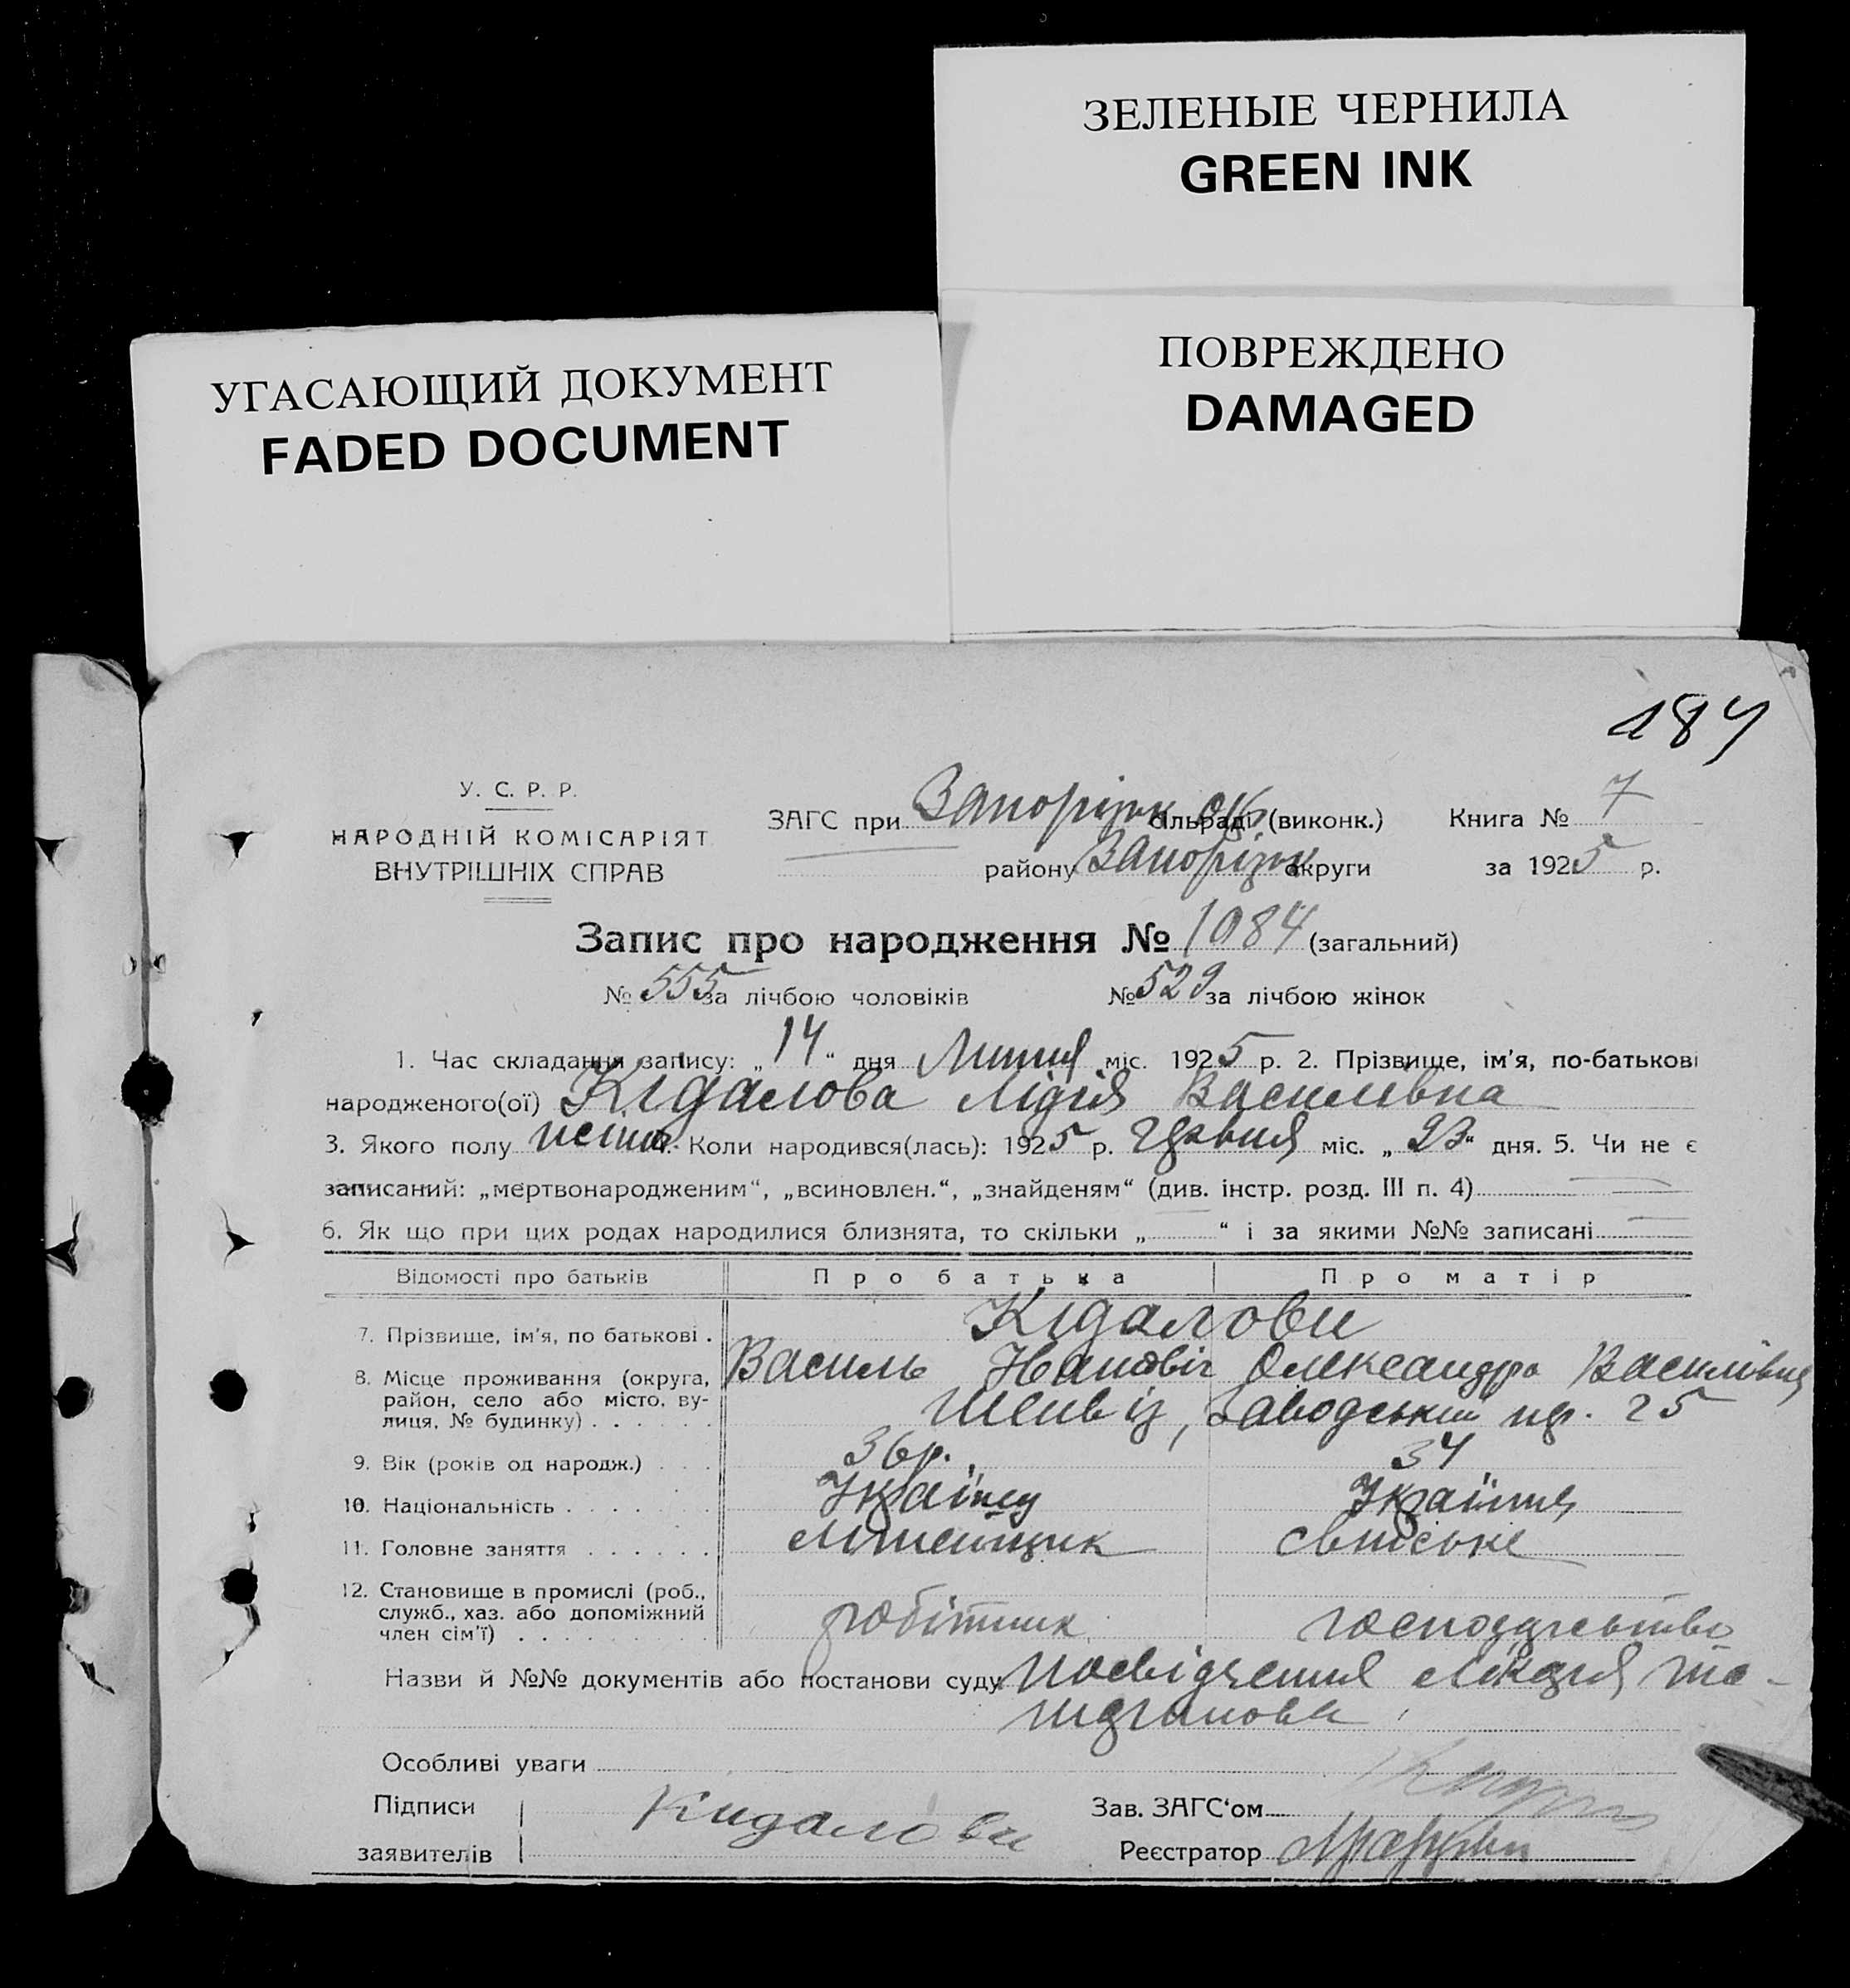 ЗЕЛЕНЫЕ ЧЕРНИЛА
GREEN INK
ПОВРЕЖДЕНО
DAMAGED
УГАСАЮЩИЙ ДОКУМЕНТ
FADED DOCUMENT
184
У. С. Р. Р.
НАРОДНІЙ КОМІСАРІЯТ
ВНУТРІШНІХ СПРАВ
ЗАГС при Запоріжк ок. сільраді (виконк.) Книга № 7
району Запоріжк округи за 1925 р.
Запис про народження № 1084 (загальний)
№ 555 за лічбою чоловіків № 529 за лічбою жінок
1. Час складання запису: „14“ дня Липня міс. 1925 р. 2. Прізвище, ім'я, по-батькові
народженого(ої) Кідалова Лідія Василівна
3. Якого полу 4. Коли народився(лась): 1925 р. Червня міс. „23“ дня. 5. Чи не є
записаний: „мертвонародженим“, „всиновлен.“, „знайденям“ (див. інстр. розд. III п. 4)
6. Як що при цих родах народилися близнята, то скільки „ “ і за якими №№ записані
Відомості про батьків Про батька Про матір
7. Прізвище, ім'я, по батькові . Кідалови
Василь Іванович Олександра Василівна
8. Місце проживання (округа, район, село або місто, вулиця, № будинку) . . . . . . Шенвіз, Заводський пр. 25
9. Вік (років од народж.) . . . 36 р. 34
10. Національність . . . . . . Українец Українка
11. Головне заняття . . . . . . литейщик свійське
12. Становище в промислі (роб., служб., хаз. або допоміжний член сім'ї) . . . . . . . . робітник господарство
Назви й №№ документів або постанови суду посвідчення лікаря та
Особливі уваги
Підписи
заявителів Кидалови
Зав. ЗАГС'ом
Реєстратор